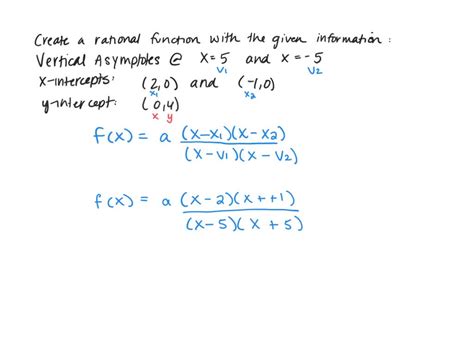 Create a rational function with the given information:
Vertical Asymptotes @ x=5 and x=-5
V1 V2
x-intercepts: (2,0) and (-1,0)
x1 x2
y-intercept: (0,4)
x y
f(x) = a (x-x1)(x-x2)
(x-v1)(x-v2)
f(x) = a (x-2)(x++1)
(x-5)(x+5)